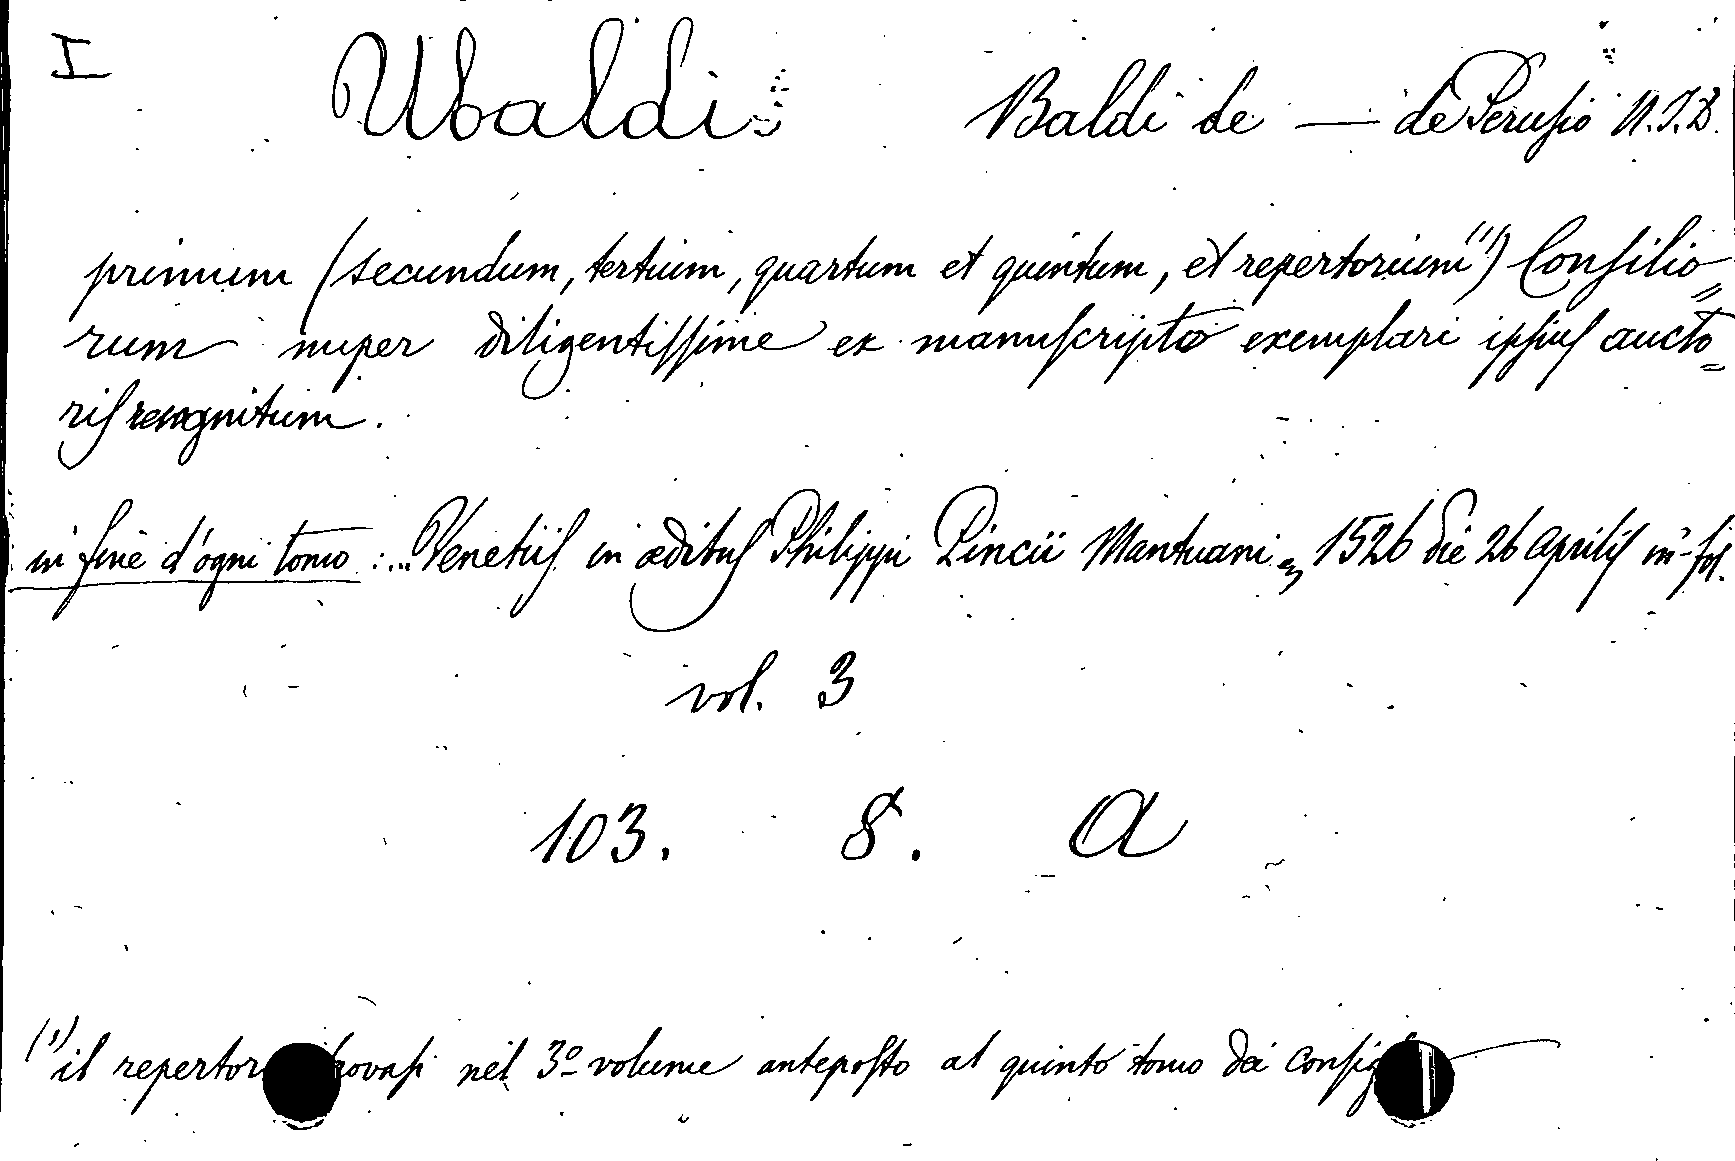 I Ubaldi Baldi de — de Perusio U.I.D.
primum (secundum, tertium, quartum et quintum, et repertorium (1)) Consilio=
rum nuper diligentissime ex manuscripto exemplari ipsius aucto=
ris recognitum.
in fine d'ogni tomo : ... Venetiis in ædibus Philippi Pincii Mantuani 1526 die 26 Aprilis in-fol.
vol. 3
103. 8. A
(1) il repertor trovasi nel 3º volume anteposto al quinto tomo dei Consig